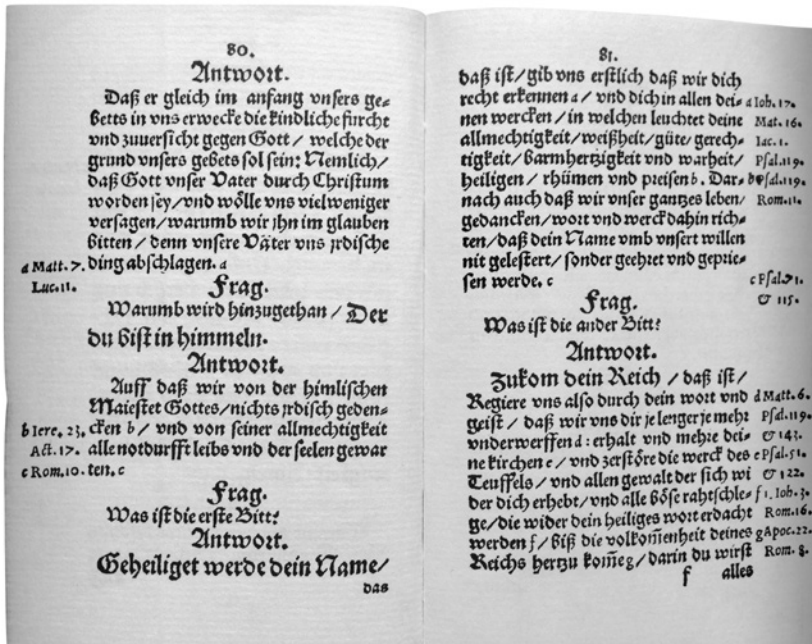 80.
Antwort.
Daß er gleich im anfang vnsers ge⸗
betts in vns erwecke die kindliche furcht
vnd zuuersicht gegen Gott / welche der
grund vnsers gebets sol sein: Nemlich/
daß Gott vnser Vater durch Christum
worden sey/vnd wölle vns viel weniger
versagen/warumb wir jhn im glauben
bitten / denn vnsere Väter vns jrdische
a Matt. 7. ding abschlagen. a
Luc. 11.
Frag.
Warumb wird hinzugethan / Der
du bist in himmeln.
Antwort.
Auff daß wir von der himlischen
Maiestet Gottes/nichts jrdisch geden⸗
b Iere. 23. cken b / vnd von seiner allmechtigkeit
Act. 17. alle notdurfft leibs vnd der seelen gewar
c Rom. 10. ten. c
Frag.
Was ist die erste Bitt?
Antwort.
Geheiliget werde dein Name/
das
81.
daß ist/gib vns erstlich daß wir dich
recht erkennen a / vnd dich in allen dei⸗ a Ioh. 17.
nen wercken / in welchen leuchtet deine Mat. 16.
allmechtigkeit/weißheit/güte/gerech⸗ Iac. 1.
tigkeit/barmhertzigkeit vnd warheit/ Psal. 119.
heiligen / rhümen vnd preisen b. Dar⸗ b Psal. 119.
nach auch daß wir vnser gantzes leben/ Rom. 11.
gedancken/wort vnd werck dahin rich⸗
ten/daß dein Name vmb vnsert willen
nit gelestert/sonder geehret vnd geprie⸗
sen werde. c c Psal. 71.
& 115.
Frag.
Was ist die ander Bitt?
Antwort.
Zukom dein Reich / daß ist/
Regiere vns also durch dein wort vnd d Matt. 6.
geist / daß wir vns dir je lenger je mehr Psal. 119.
vnderwerffen d : erhalt vnd mehre dei⸗ & 143.
ne kirchen e / vnd zerstöre die werck des e Psal. 51.
Teuffels / vnd allen gewalt der sich wi & 122.
der dich erhebt/vnd alle böse rahtschle⸗ f 1. Ioh. 3.
ge/die wider dein heiliges wort erdacht Rom. 16.
werden f / biß die volkom̃enheit deines g Apoc. 22.
Reichs hertzu kom̃e g / darin du wirst Rom. 8.
f alles